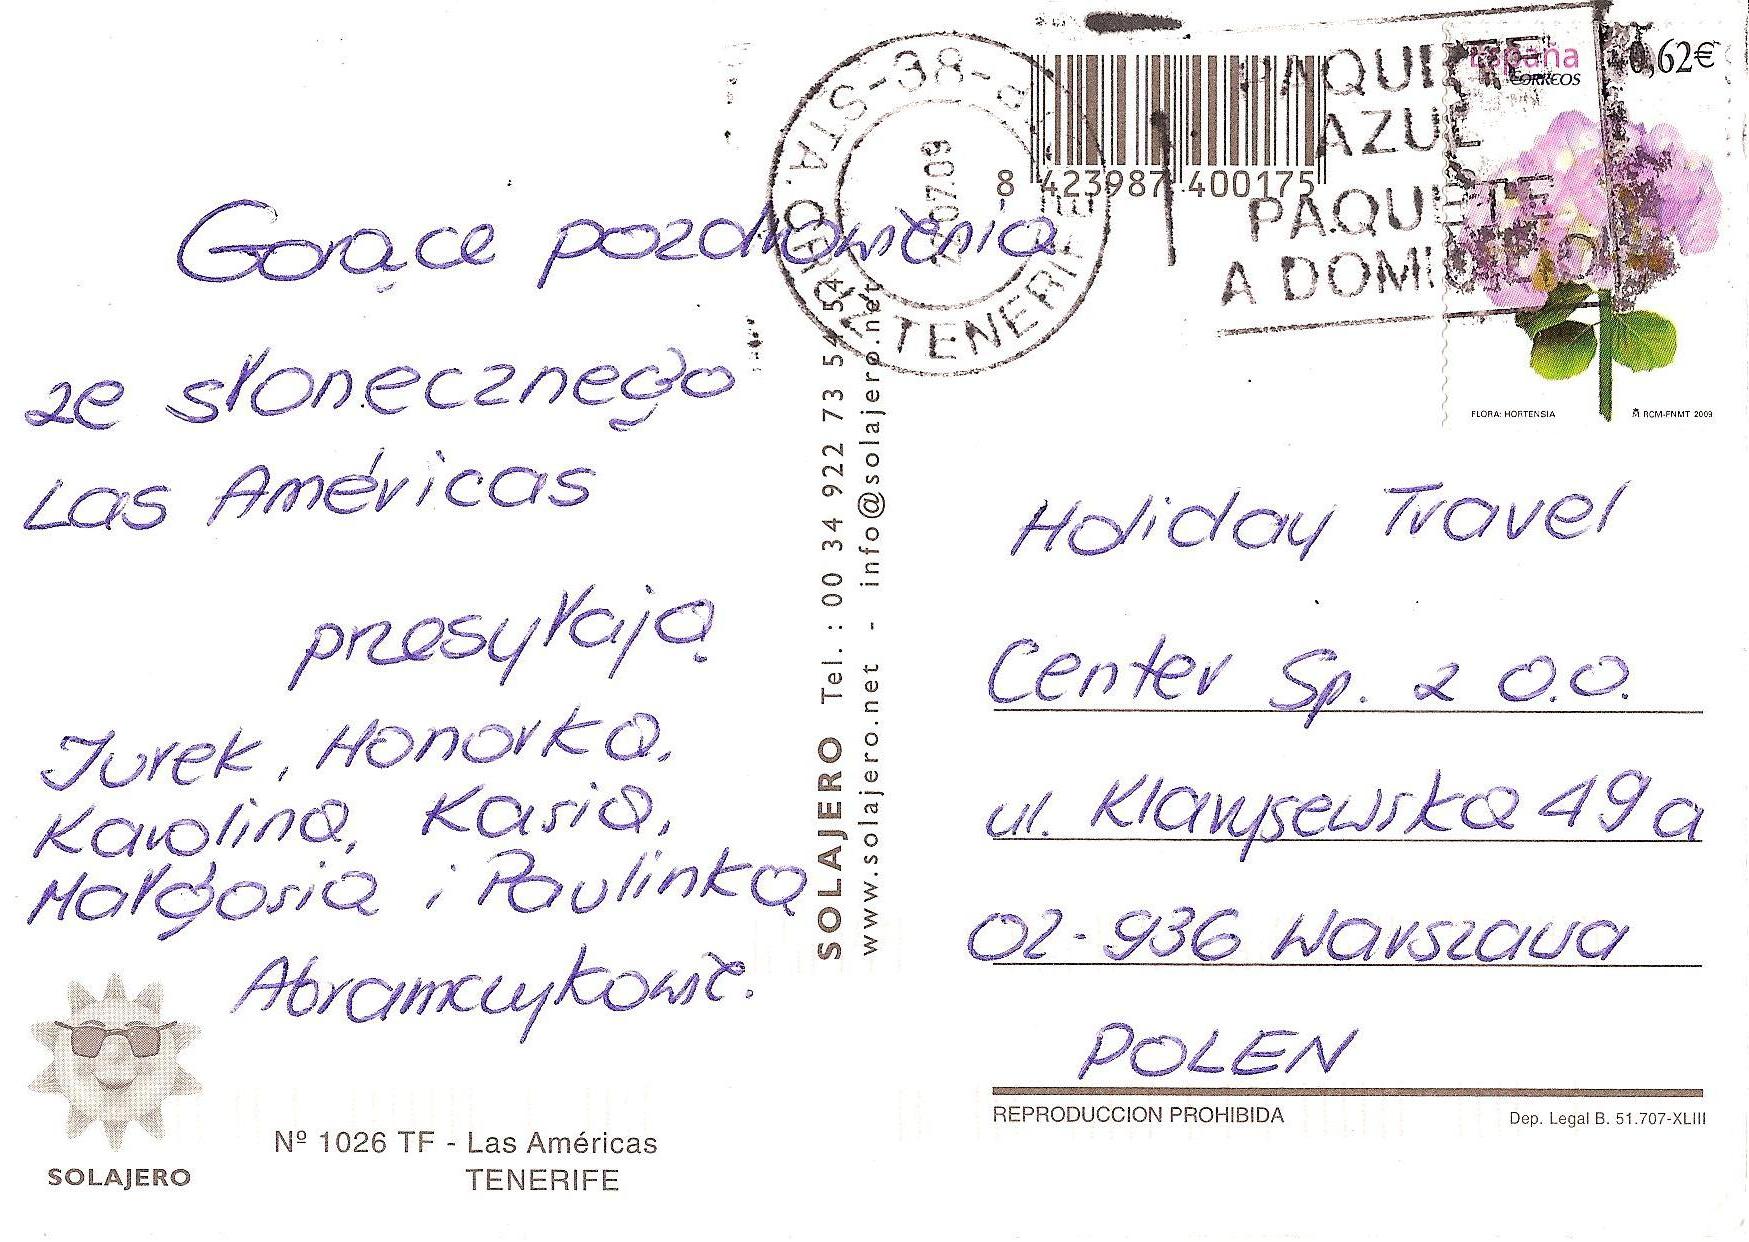 Gorące pozdrowienia
ze słonecznego
Las Américas
przesyłają
Jurek, Honorka,
Karolina, Kasia,
Małgosia i Paulinka
Abramczykowie.
SOLAJERO
Nº 1026 TF - Las Américas
TENERIFE
SOLAJERO Tel. : 00 34 922 73 54 54
www.solajero.net - info@solajero.net
8 423987 400175
STA. CRUZ TENERIFE
07.09
PAQUETE
AZUL
PAQUETE
A DOMICILIO
España
CORREOS
0,62€
FLORA: HORTENSIA
RCM-FNMT 2009
Holiday Travel
Center Sp. z o.o.
ul. Klarysewska 49a
02-936 Warszawa
POLEN
REPRODUCCION PROHIBIDA
Dep. Legal B. 51.707-XLIII